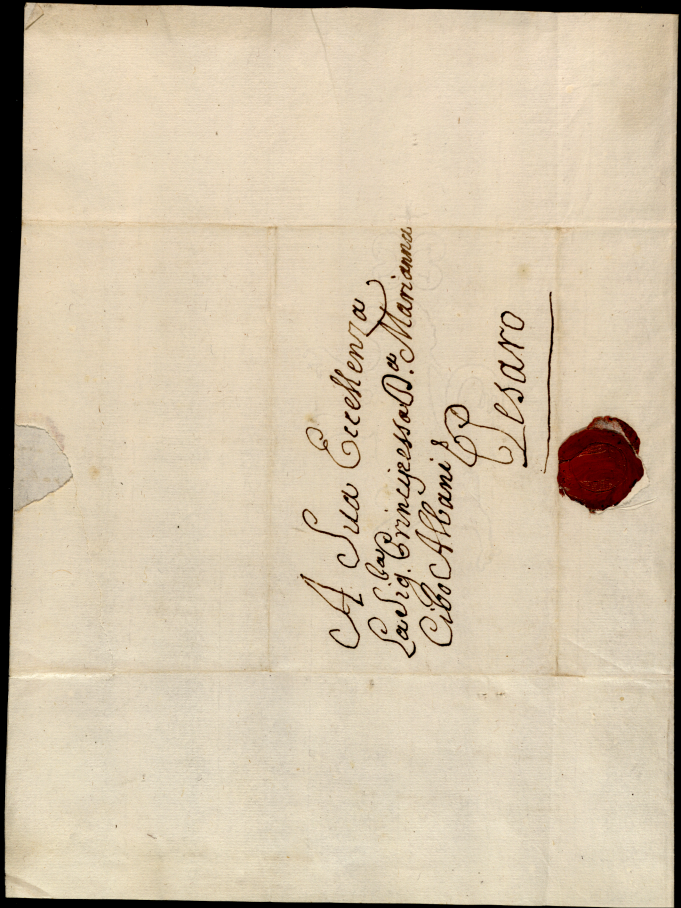 A Sua Eccellenza
La Sig.ra Principessa D.a Marianna
Cibo Albani
Pesaro